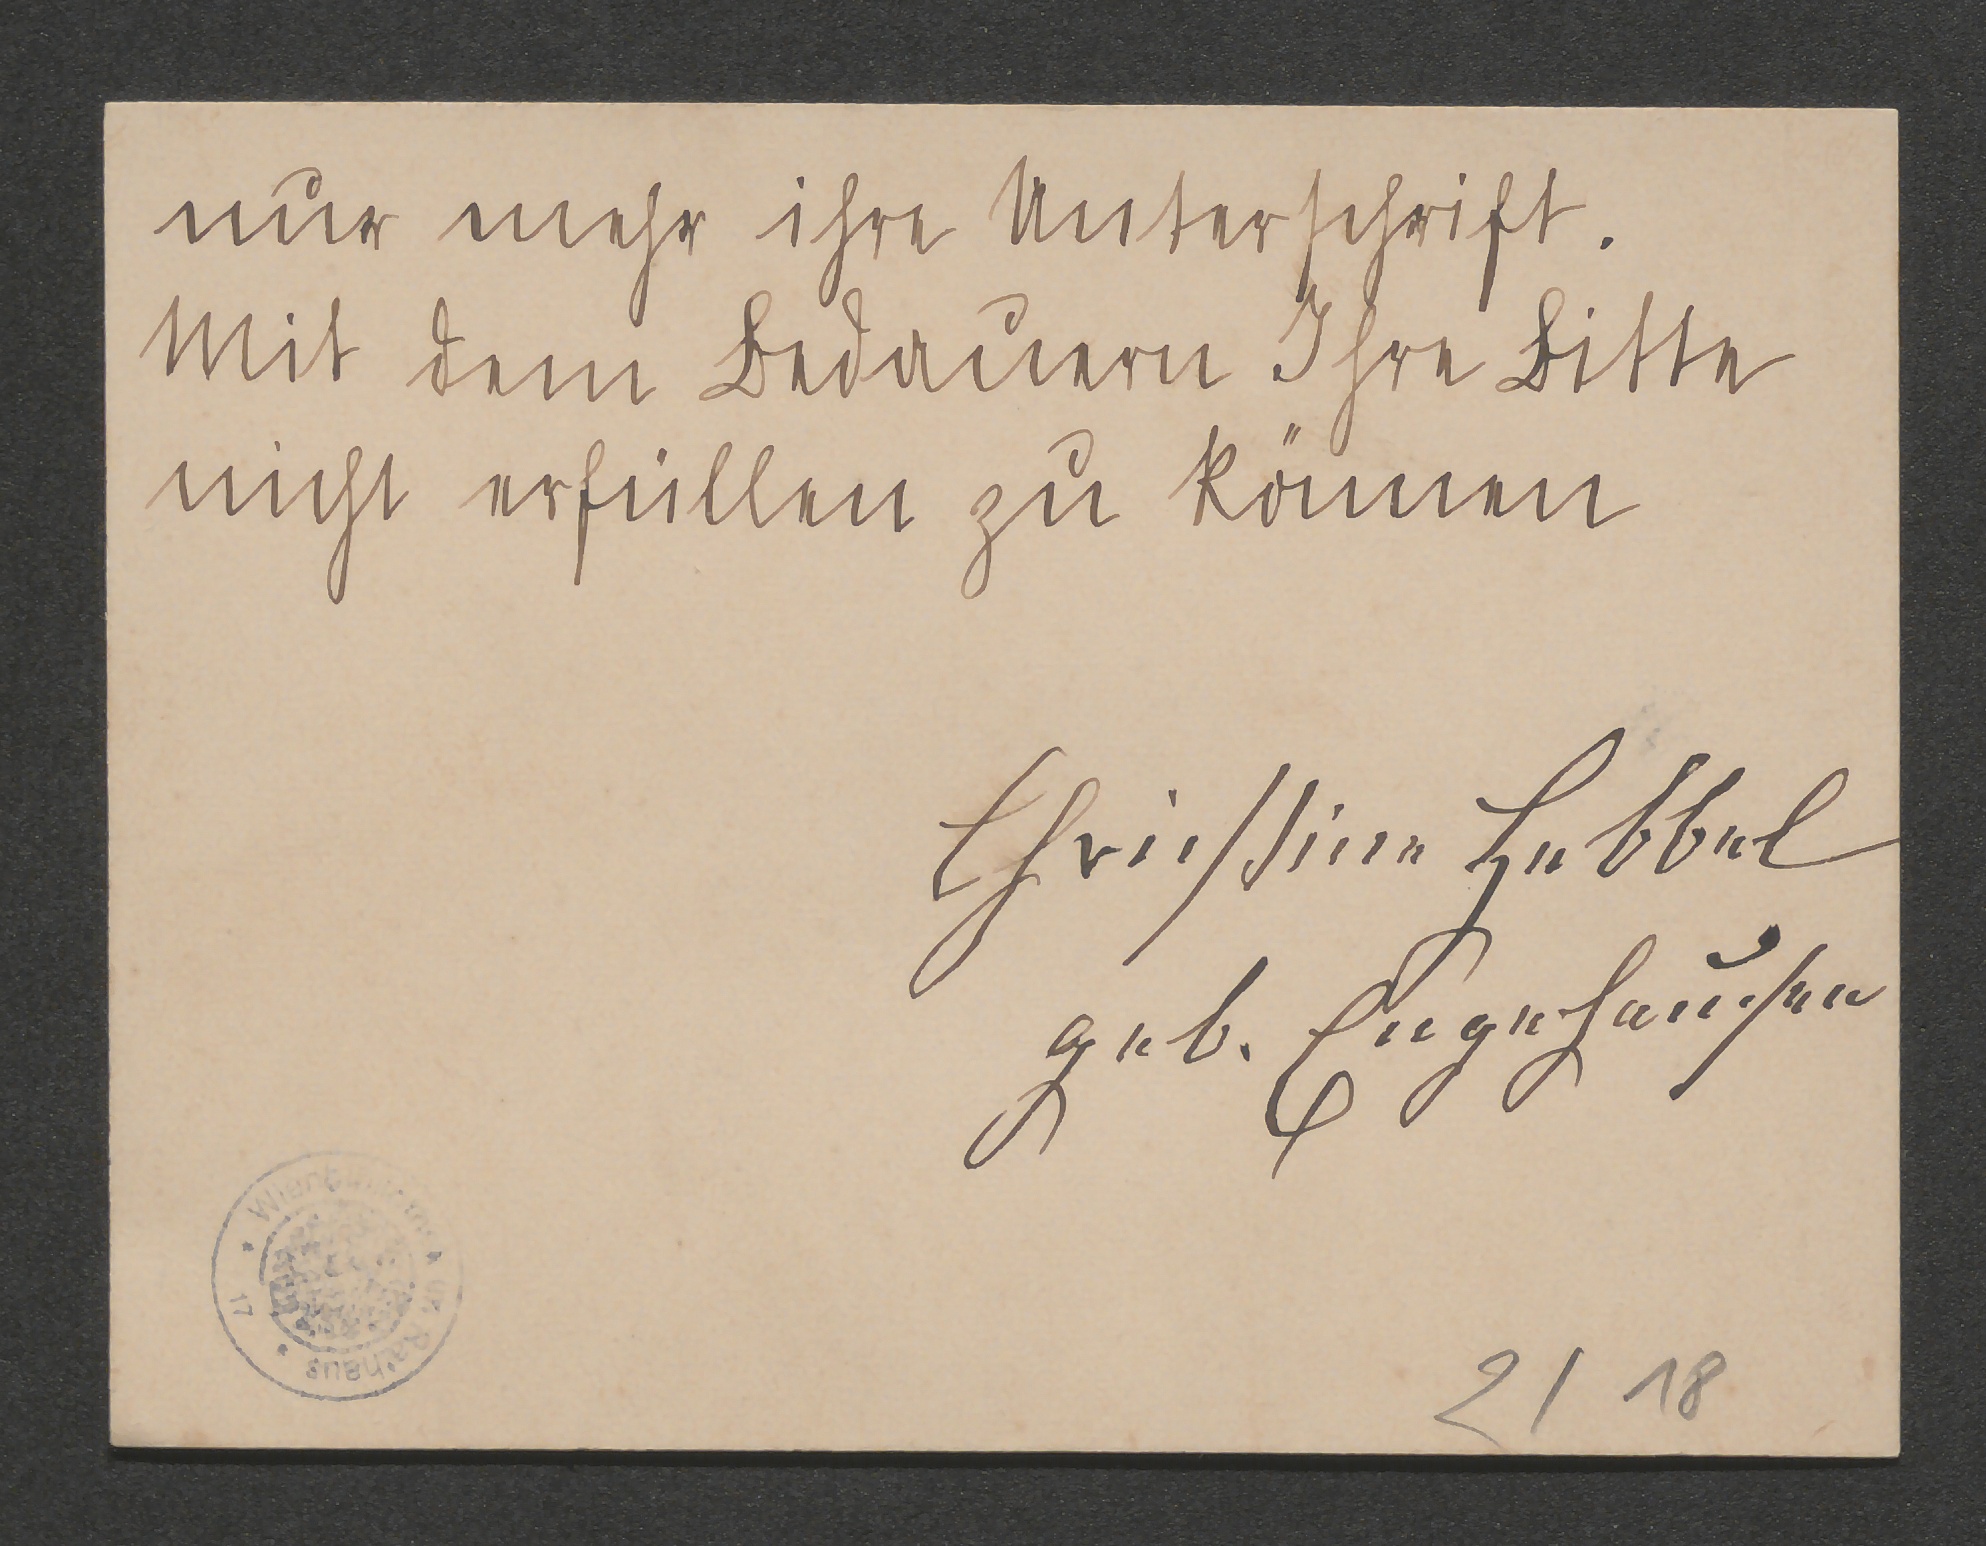 nur mehr ihre Unterschrift.
Mit dem Bedauern Ihre Bitte
nicht erfüllen zu können
Christine Hebbel
geb. Engehausen
Rathaus
17
2/ 18